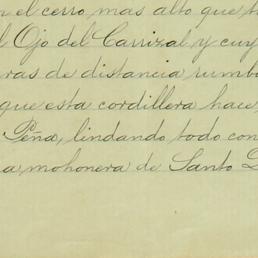 n el cerro mas alto que t
l Ojo del Carrizal y cuy
ras de distancia rumb
que esta cordillera hace
Peña, lindando todo con
a mohonera de Santo D